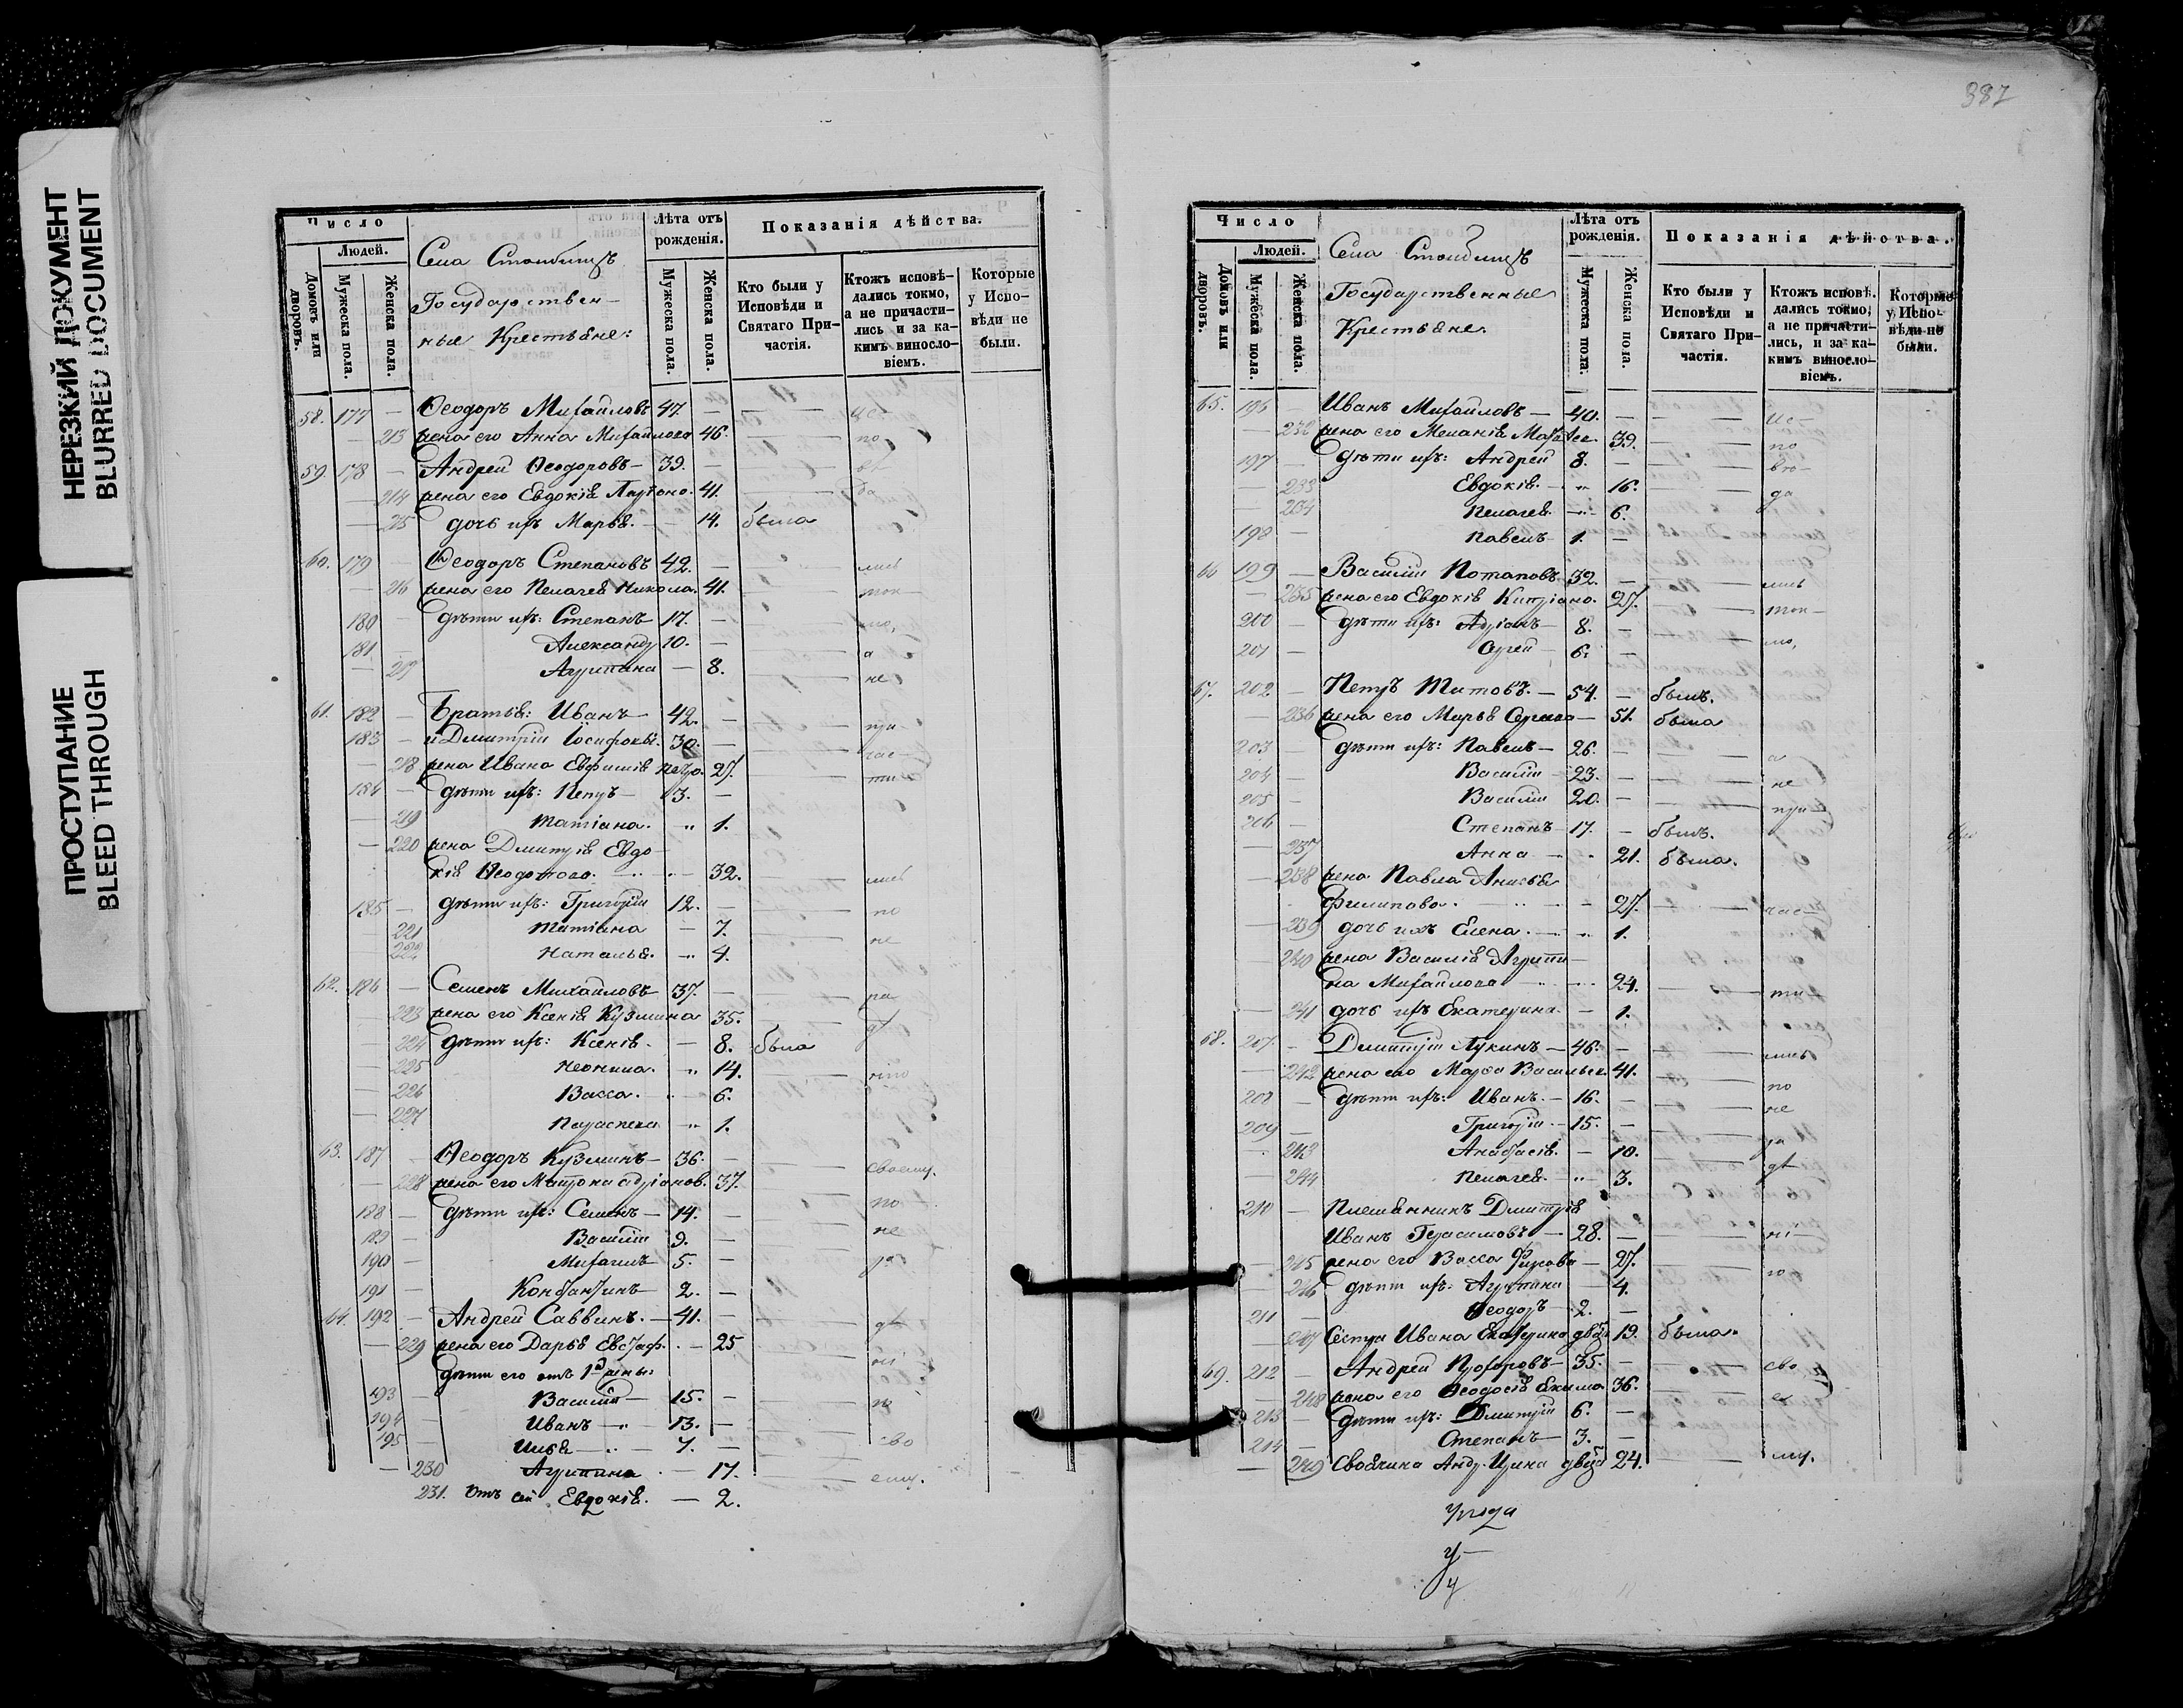 НЕРЕЗКИЙ ДОКУМЕНТ
BLURRED DOCUMENT
ПРОСТУПАНИЕ
BLEED THROUGH
Число
Людей.
Домовъ или дворовъ.
Мужеска пола.
Женска пола.
Села Столбищъ
Государствен-
ные Крестьяне:
Лѣта отъ рожденія.
Мужеска пола.
Женска пола.
Показанія дѣйства.
Кто были у Исповѣди и Святаго При-частія.
Ктожъ исповѣ-дались токмо, а не причасти-лись и за ка-кимъ винословіемъ.
Которые у Испо-вѣди не были.
58. 177 — Ѳеодоръ Михайловъ 47. — ис-
— 213 жена его Анна Михайлова 46. — по
59. 178 — Андрей Ѳеодоровъ — 39. —
— 214 жена его Евдокія Ларіоно. 41. — да
— 215 дочь ихъ Марья. — 14. была
60. 179 — Ѳеодоръ Степановъ 42. — лись
— 216 жена его Пелагея Никола. 41. — ток-
180 — дѣти ихъ: Степанъ 17. — мо,
181 — Александръ 10. — а
— 217 Агрипина — 8. не
61. 182 — Братья: Иванъ — 42. — при-
183 — и Дмитрій Іосифовы. 30. — час-
— 218 жена Ивана Евфимія Петро. 27. — ти-
184 — дѣти ихъ: Петръ — 13. —
— 219 Татіана. " 1.
— 220 жена Дмитрія Евдо-
кія Ѳеодотова. — 32. — лись
185 — дѣти ихъ: Григорій 12. — по
221 Татіана — 7. не
222 Наталья. — 4.
62. 186 — Семенъ Михайловъ 37. — ра
— 223 жена его Ксенія Кузмина 35.
— 224 дѣти ихъ: Ксенія. — 8. была
— 225 Неонила. " 14.
— 226 Васса. — 6.
— 227 Параскева — 1.
63. 187 — Ѳеодоръ Кузминъ — 36. — своему.
— 228 жена его Матрона Адріанов. 37. — по
188 — дѣти ихъ: Семенъ — 14. — не
189 — Василій 9. —
190 — Михаилъ 5. — ра
191 — Константинъ 2. —
64. 192 — Андрей Саввинъ. — 41. —
— 229 жена его Дарья Евстаф. — 25
дѣти его отъ 1й жены:
193 — Василій 15. —
194 Иванъ — 13. —
195 — Илья — 7. — сво
— 230 Агрипина — 17. — ему.
231. Отъ сей Евдокія. — 2.
387
Число
Людей.
Домовъ или дворовъ.
Мужеска пола.
Женска пола.
Села Столбищъ
Государственные
Крестьяне.
Лѣта отъ рожденія.
Мужеска пола.
Женска пола.
Показанія дѣйства.
Кто были у Исповѣди и Святаго При-частія.
Ктожъ исповѣ.дались токмо, а не причасти-лись, и за ка-кимъ винословіемъ.
Которые у Испо-вѣди не были.
65. 196 — Иванъ Михайловъ — 40. — ис-
— 232 жена его Меланія Матвее. 39. — по
197 — дѣти ихъ: Андрей 8. — вѣ-
— 233 Евдокія. " 16. да
— 234 Пелагея. — 6.
198 Павелъ 1. —
66 199 — Василій Потаповъ 32. — лись
— 235 жена его Евдокія Кипріано. 27. — ток-
200 — дѣти ихъ: Адріанъ 8. — мо,
201 — 6. —
67. 202 — Петръ Титовъ. — 54. — былъ.
— 236 жена его Марья Сергеева — 51. была
203 — дѣти ихъ: Павелъ — 26. — а
204 — Василій — 23. — не
205 — Василій 20. — при
206 — Степанъ — 17. — былъ.
— 237 Анна — 21. была.
— 238 жена Павла Анисья
Филипова. — 27. — час-
— 239 дочь ихъ Елена. — 1.
— 240 жена Василія Агрипи-
на Михайлова — 24. — ти-
— 241 дочь ихъ Екатерина. — 1.
68. 207 — Дмитрій Лукинъ — 46. — лись
— 242 жена его Марѳа Василье. 41. — по
208 — дѣти ихъ: Иванъ. — 16. — не
209 — Григорій — 15. — ра
— 243 Анастасія. — 10.
— 244 Пелагея. — 3.
210 — Племянникъ Дмитрія
Иванъ Герасимовъ — 28. —
— 245 жена его Васса Фирсова — 27.
— 246 дѣти ихъ: Агрипина — 4.
211 — Ѳеодоръ — 2. —
— 247 Сестра Ивана Екатерина двца 19. была.
69. 212 — Андрей Прохоровъ — 35. — сво
— 248 жена его Ѳеодосія Екимо. 36. — е
213 — дѣти ихъ: Дмитрій 6. —
214 — Степанъ — 3. —
— 249 Своячина Андр. Ирина двца 24. — му.